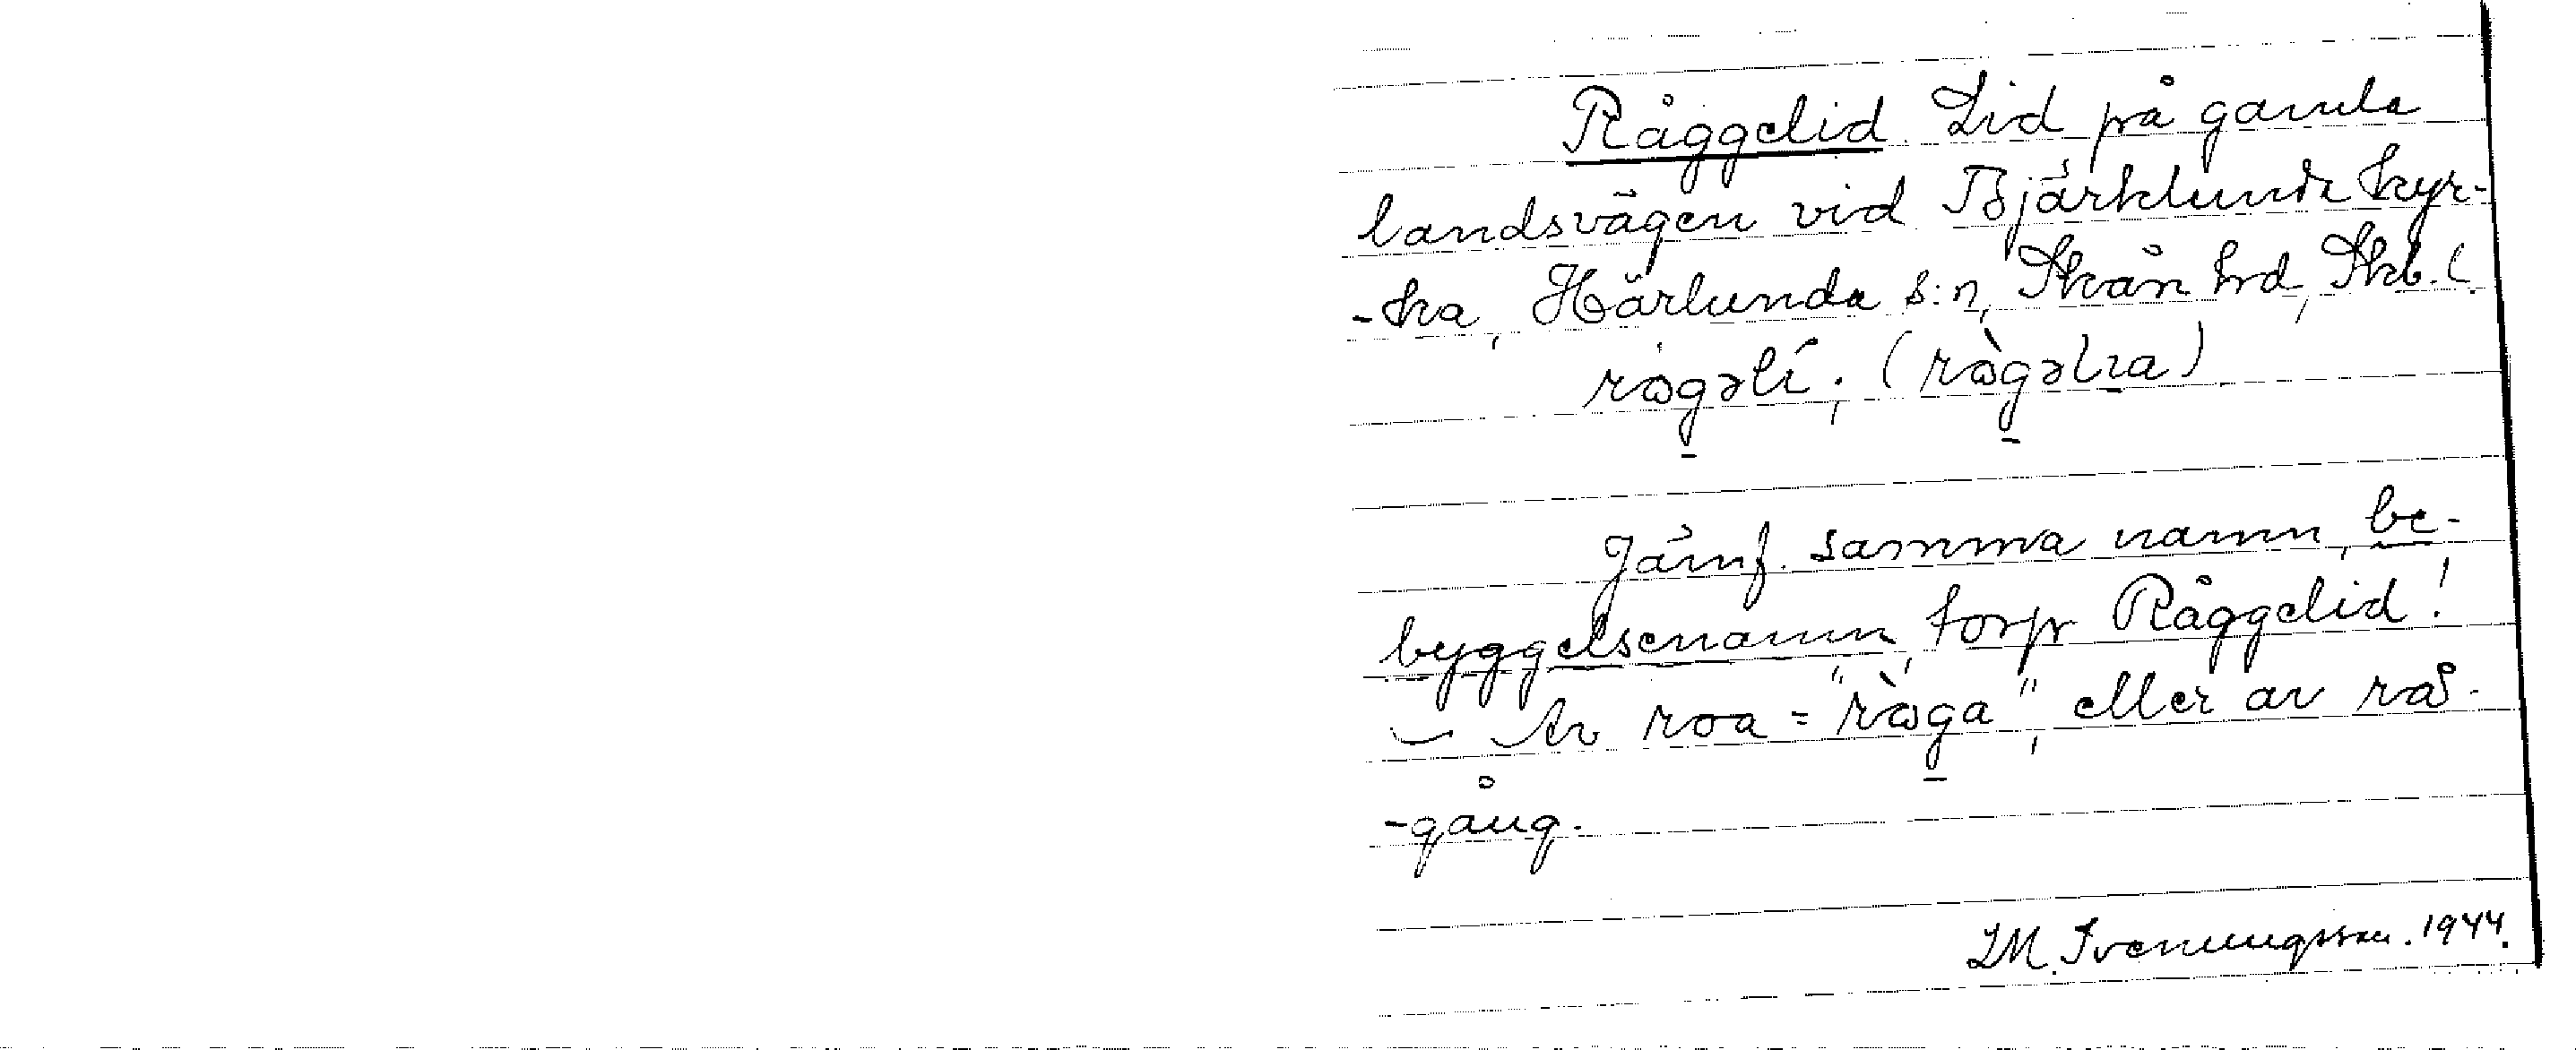 Råggelid. Lid på gamla
landsvägen vid Bjärklunda kyr-
-ka, Härlunda s:n, Skån. hrd, Skb. l.
rågəlí; (rågəlɩa)
Jämf. samma namn, be-
byggelsenamn, torp Råggelid!
— Av roa = "råga", eller av rå-
-gång.
LM. Svenungsson. 1944.